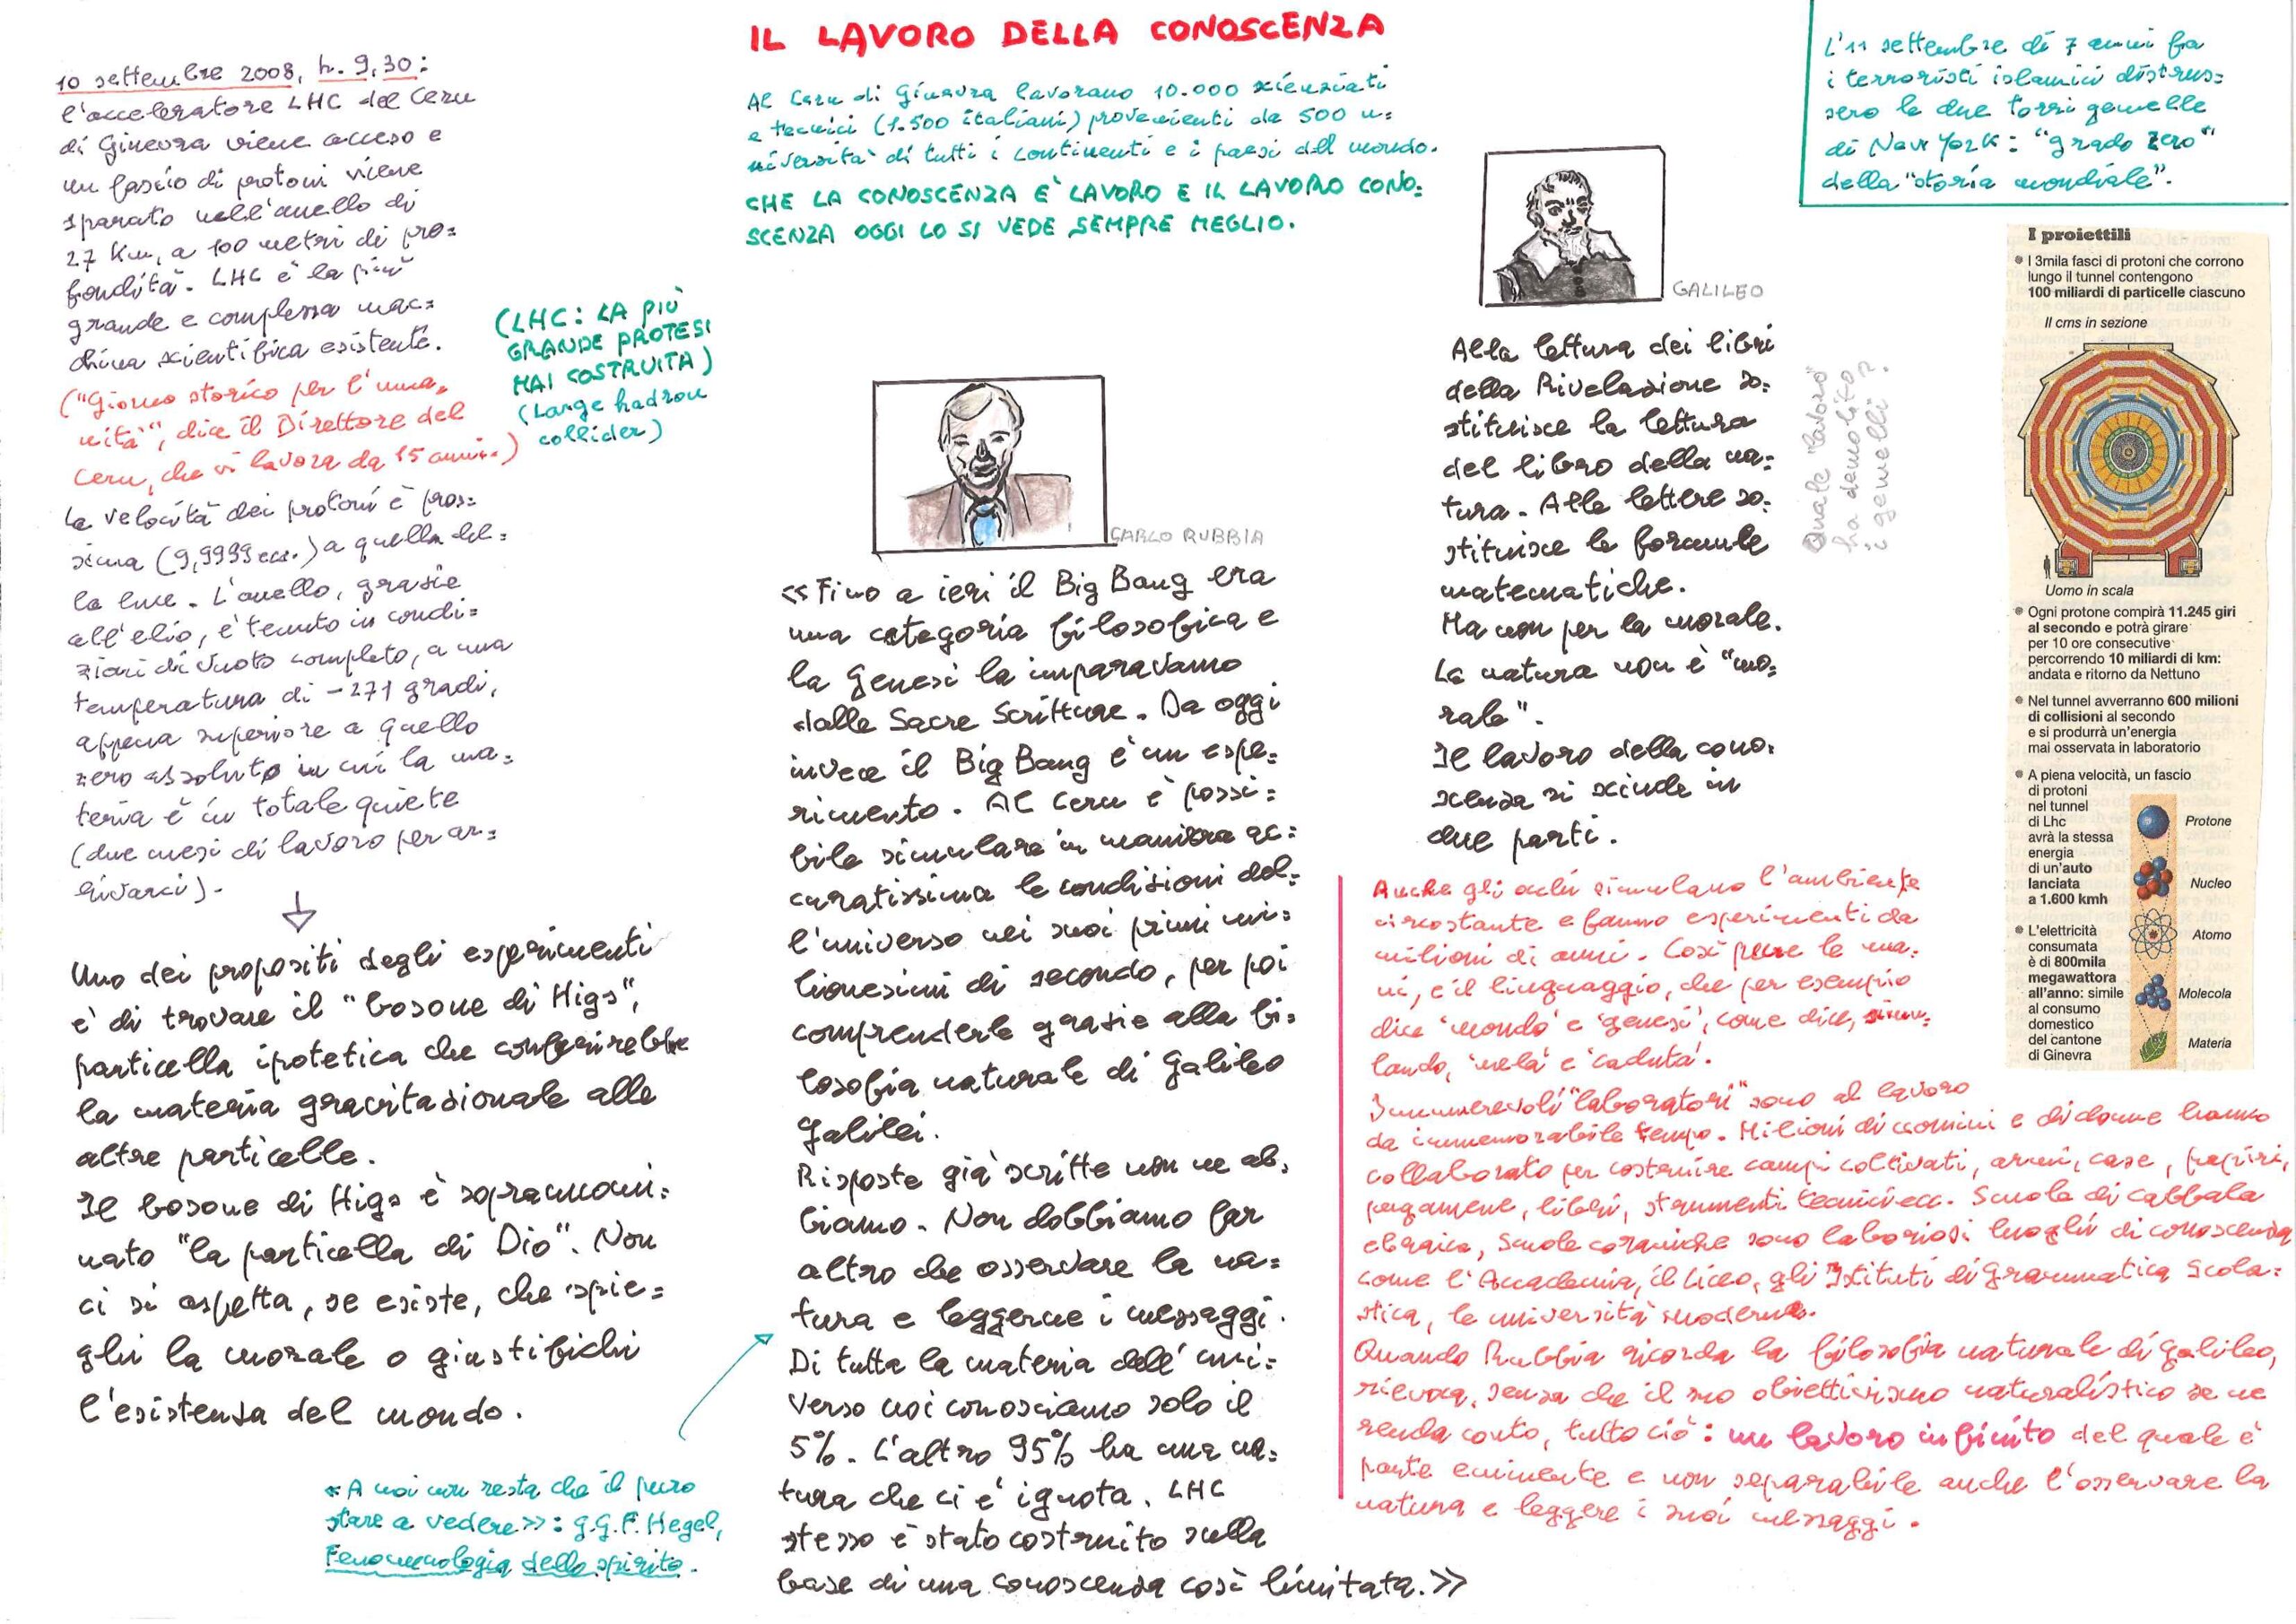 IL LAVORO DELLA CONOSCENZA
10 settembre 2008, h. 9,30:
l'acceleratore LHC del Cern
di Ginevra viene acceso e
un fascio di protoni viene
sparato nell'anello di
27 Km, a 100 metri di pro=
fondità. LHC è la più
grande e complessa mac=
china scientifica esistente.
("Giorno storico per l'uma=
nità", dice il Direttore del
Cern, che vi lavora da 15 anni.)
(LHC: LA PIÙ
GRANDE PROTESI
MAI COSTRUITA)
(Large hadron
collider)
La velocità dei protoni è pros=
sima (9,9999 ecc.) a quella del=
la luce. L'anello, grazie
all'elio, è tenuto in condi=
zioni di vuoto completo, a una
temperatura di -271 gradi,
appena superiore a quello
zero assoluto in cui la ma=
teria è in totale quiete
(due mesi di lavoro per ar=
rivarci).
Uno dei propositi degli esperimenti
è di trovare il "bosone di Higs",
particella ipotetica che conferirebbe
la materia gravitazionale alle
altre particelle.
Il bosone di Higs è soprannomi=
nato "la particella di Dio". Non
ci si aspetta, se esiste, che spie=
ghi la morale o giustifichi
l'esistenza del mondo.
«A noi non resta che il puro
stare a vedere»: G.G.F. Hegel,
Fenomenologia dello spirito.
Al Cern di Ginevra lavorano 10.000 scienziati
e tecnici (1.500 italiani) provenienti da 500 u=
niversità di tutti i continenti e i paesi del mondo.
CHE LA CONOSCENZA E' LAVORO E IL LAVORO CONO=
SCENZA OGGI LO SI VEDE SEMPRE MEGLIO.
CARLO RUBBIA
«Fino a ieri il Big Bang era
una categoria filosofica e
la Genesi la imparavamo
dalle Sacre Scritture. Da oggi
invece il Big Bang è un espe=
rimento. Al Cern è possi=
bile simulare in maniera ac=
curatissima le condizioni del=
l'universo nei suoi primi mi=
lionesimi di secondo, per poi
comprenderle grazie alla fi=
losofia naturale di Galileo
Galilei.
Risposte già scritte non ne ab=
biamo. Non dobbiamo far
altro che osservare la na=
tura e leggerne i messaggi.
Di tutta la materia dell'uni=
verso noi conosciamo solo il
5%. L'altro 95% ha una na=
tura che ci è ignota. LHC
stesso è stato costruito sulla
base di una conoscenza così limitata.»
GALILEO
Alla lettura dei libri
della Rivelazione so=
stituisce la lettura
del libro della na=
tura. Alle lettere so=
stituisce le formule
matematiche.
Ma non per la morale.
La natura non è "mo=
rale".
Il lavoro della cono=
scenza si scinde in
due parti.
Quale "lavoro"
ha demolito
i gemelli?
Anche gli occhi simulano l'ambiente
circostante e fanno esperimenti da
milioni di anni. Così pure le ma=
ni, e il linguaggio, che per esempio
dice 'mondo' e 'genesi', come dice, simu=
lando, 'mela' e 'caduta'.
Innumerevoli "laboratori" sono al lavoro
da immemorabile tempo. Milioni di uomini e di donne hanno
collaborato per costruire campi coltivati, armi, case, papiri,
pergamene, libri, strumenti tecnici ecc. Scuole di cabbala
ebraica, scuole coraniche sono laboriosi luoghi di conoscenza
come l'Accademia, il Liceo, gli Istituti di grammatica scola=
stica, le università moderne.
Quando Rubbia ricorda la filosofia naturale di Galileo,
rievoca, senza che il suo obiettivismo naturalistico se ne
renda conto, tutto ciò: un lavoro infinito del quale è
parte eminente e non separabile anche l'osservare la
natura e leggere i suoi messaggi.
L'11 settembre di 7 anni fa
i terroristi islamici distrus=
sero le due torri gemelle
di New York: "grado zero"
della "storia mondiale".
I proiettili
I 3mila fasci di protoni che corrono
lungo il tunnel contengono
100 miliardi di particelle ciascuno
Il cms in sezione
Uomo in scala
Ogni protone compirà 11.245 giri
al secondo e potrà girare
per 10 ore consecutive
percorrendo 10 miliardi di km:
andata e ritorno da Nettuno
Nel tunnel avverranno 600 milioni
di collisioni al secondo
e si produrrà un'energia
mai osservata in laboratorio
A piena velocità, un fascio
di protoni
nel tunnel
di Lhc
avrà la stessa
energia
di un'auto
lanciata
a 1.600 kmh
L'elettricità
consumata
è di 800mila
megawattora
all'anno: simile
al consumo
domestico
del cantone
di Ginevra
Protone
Nucleo
Atomo
Molecola
Materia